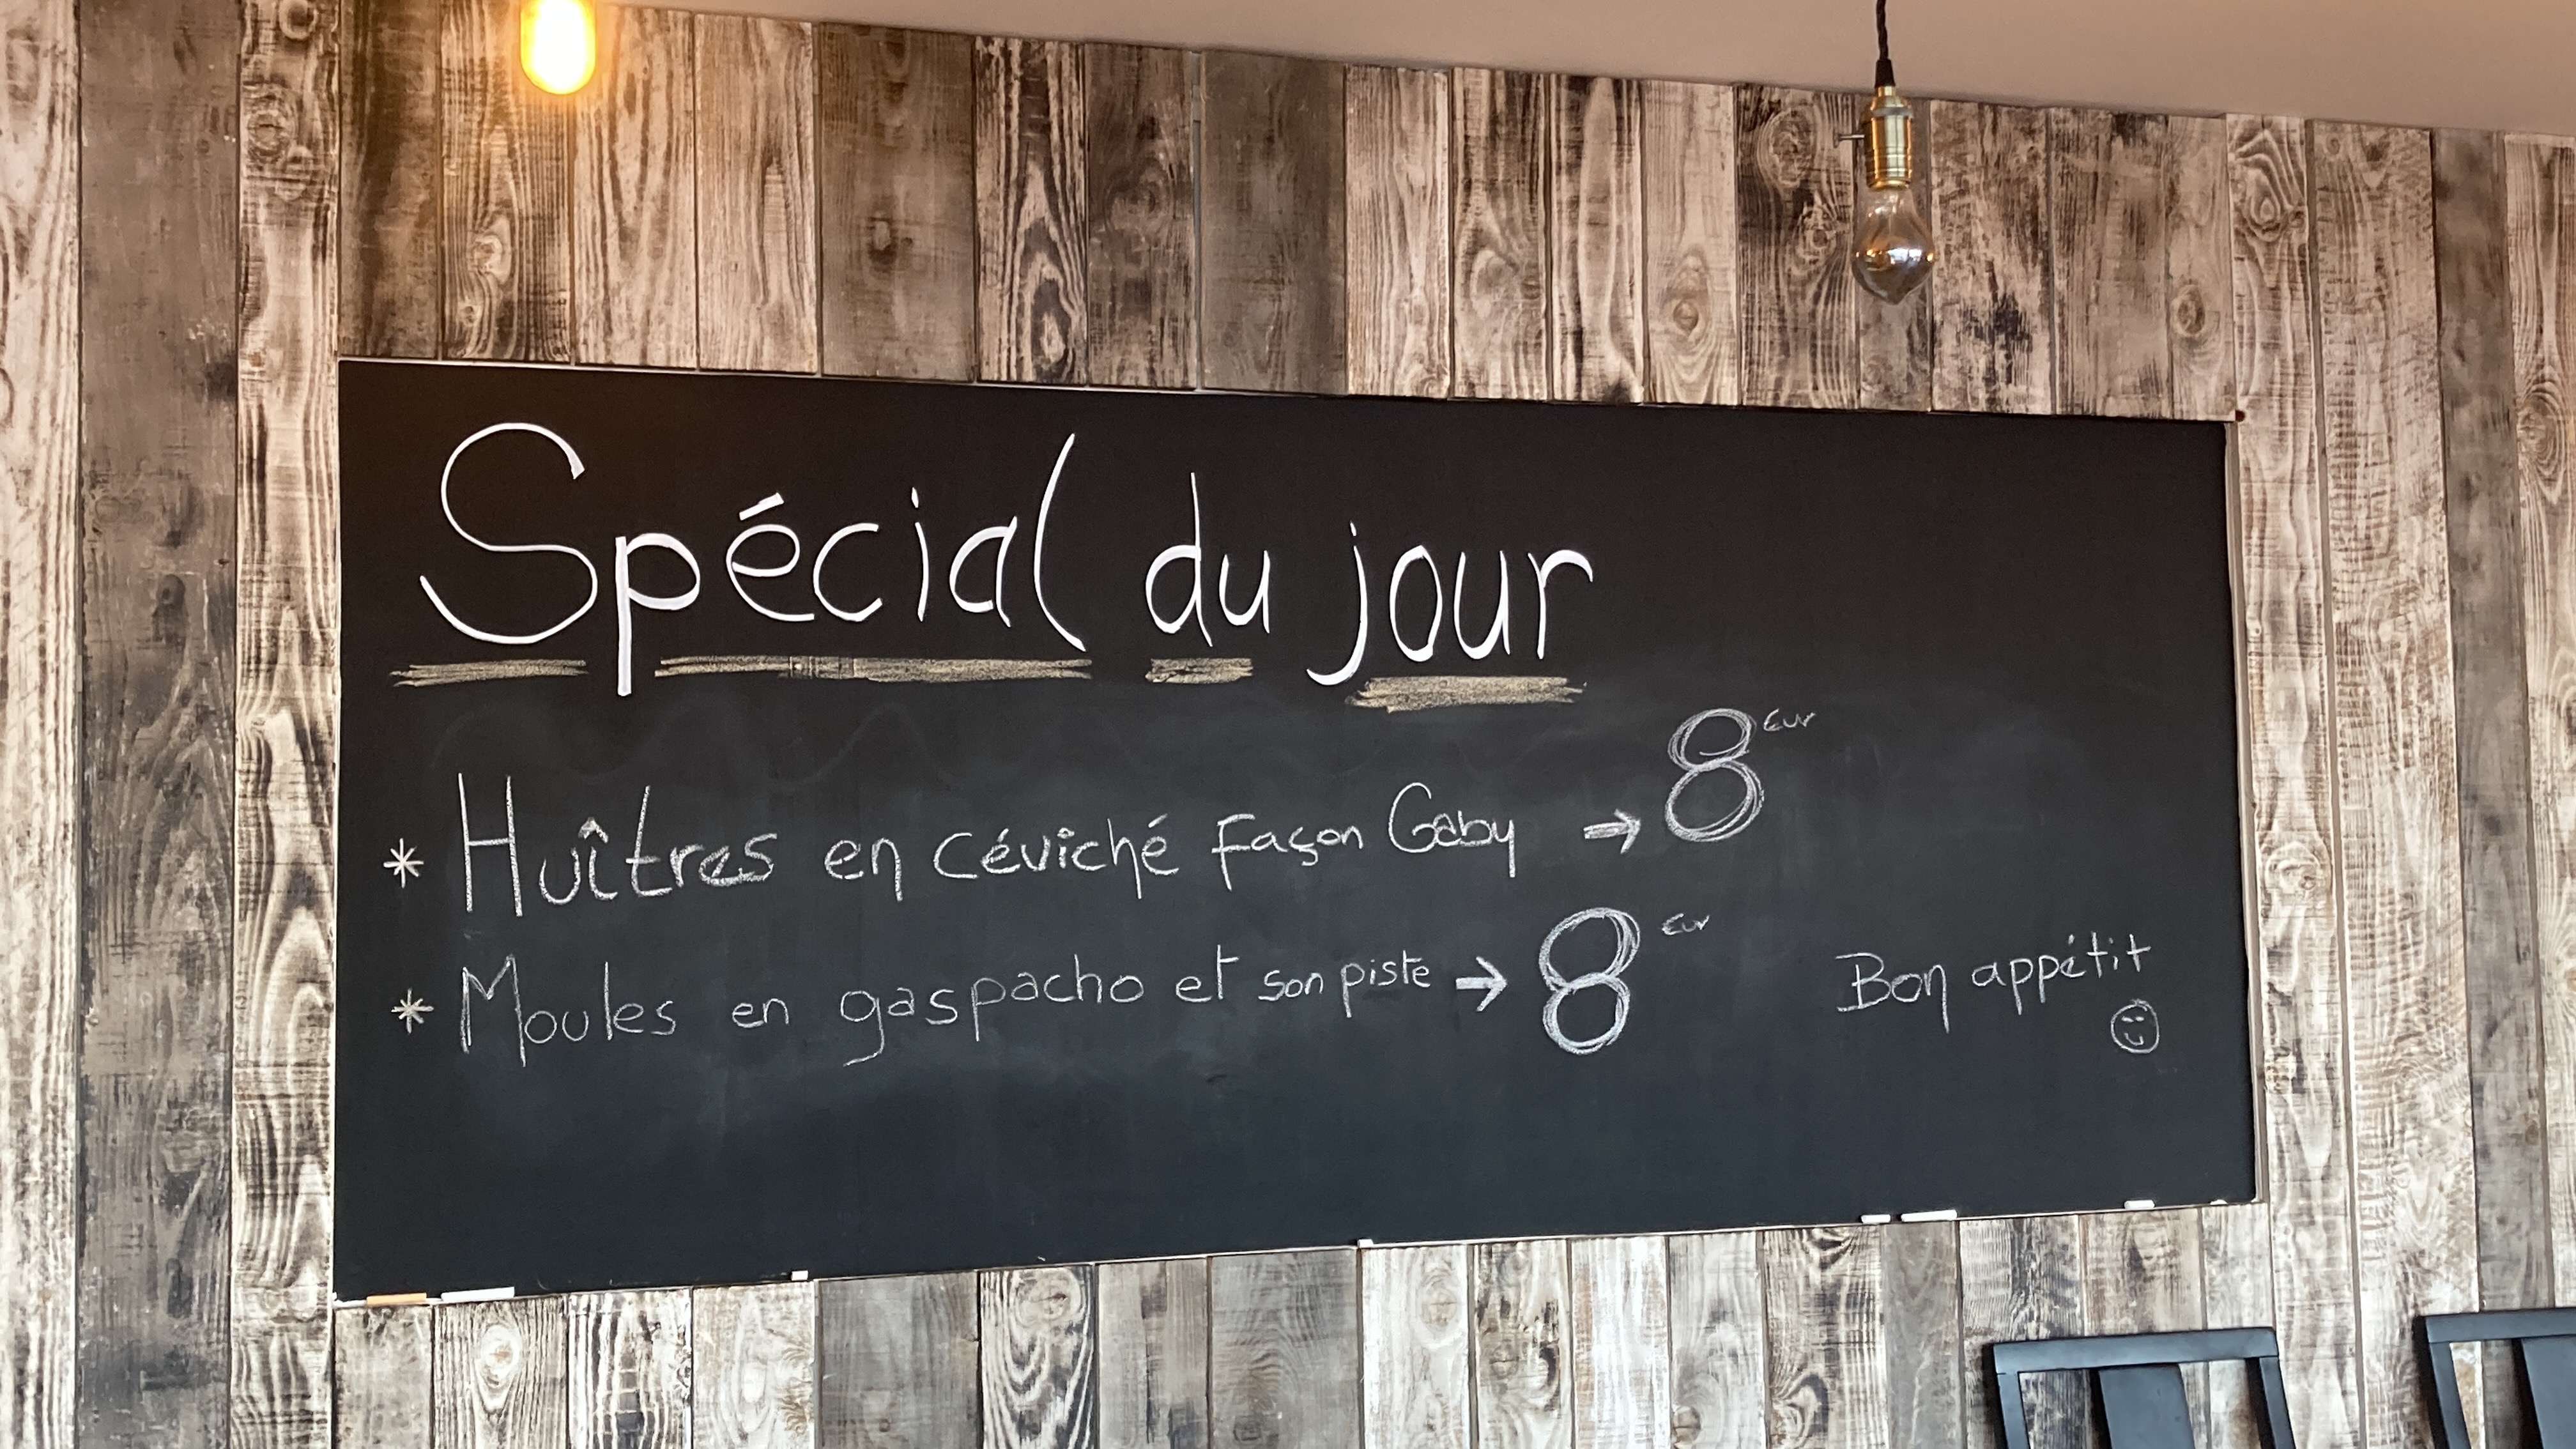 Spécial du jour
* Huîtres en céviché façon Gaby → 8 Eur
* Moules en gaspacho et son piste → 8 Eur
Bon appétit